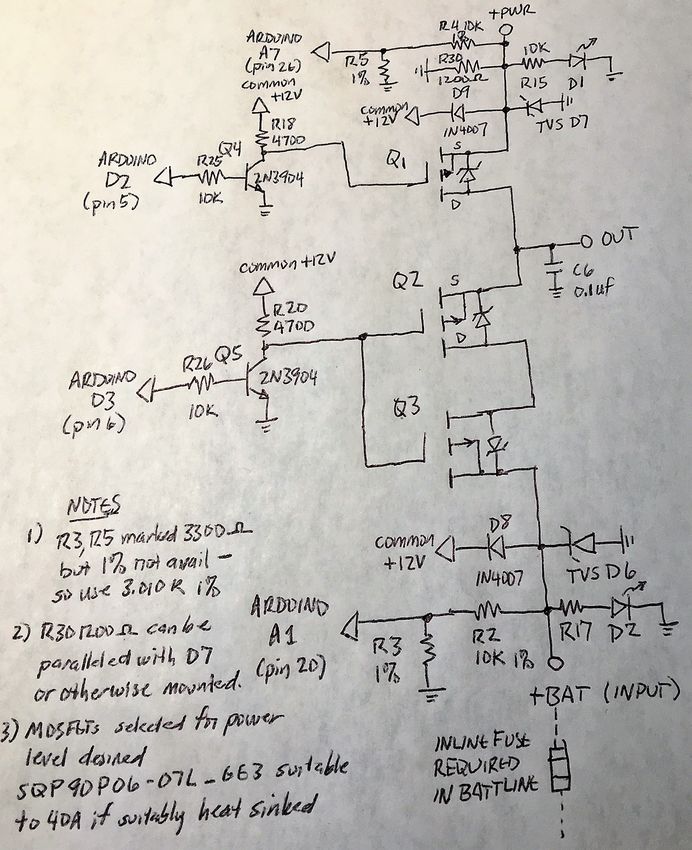 +PWR
ARDUINO
A7
(pin 26)
R4 10K
1%
R5
1%
R30
1200Ω
10K
R15
D1
common
+12V
D9
common
+12V
1N4007
TVS D7
R18
4700
Q4
Q1
S
D
ARDUINO
D2
(pin 5)
R25
10K
2N3904
OUT
C6
0.1uf
common +12V
Q2
S
D
R20
4700
Q5
R26
10K
2N3904
ARDUINO
D3
(pin 6)
Q3
NOTES
1) R3, R5 marked 3300Ω
but 1% not avail -
so use 3.010K 1%
2) R30 1200Ω can be
paralleled with D7
or otherwise mounted.
3) MOSFETs selected for power
level desired
SQP90P06-07L_GE3 suitable
to 40A if suitably heat sinked
D8
common
+12V
1N4007
TVS D6
ARDUINO
A1
(pin 20)
R3
1%
R2
10K 1%
R17
D2
+BAT (INPUT)
INLINE FUSE
REQUIRED
IN BATT LINE